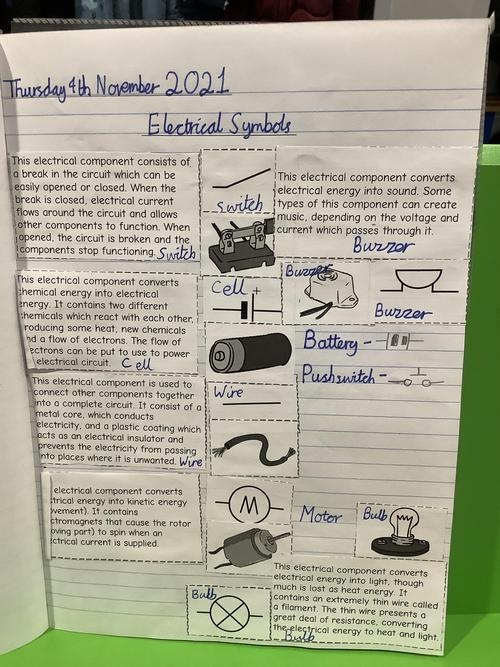 Thursday 4th November 2021
Electrical Symbols
This electrical component consists of
a break in the circuit which can be
easily opened or closed. When the
break is closed, electrical current
flows around the circuit and allows
other components to function. When
opened, the circuit is broken and the
components stop functioning. Switch
Switch
This electrical component converts
electrical energy into sound. Some
types of this component can create
music, depending on the voltage and
current which passes through it.
Buzzer
This electrical component converts
chemical energy into electrical
energy. It contains two different
chemicals which react with each other,
roducing some heat, new chemicals
nd a flow of electrons. The flow of
ectrons can be put to use to power
electrical circuit. Cell
Cell
+
Buzzer
Buzzer
Battery -
Pushswitch -
This electrical component is used to
connect other components together
into a complete circuit. It consist of a
metal core, which conducts
electricity, and a plastic coating which
acts as an electrical insulator and
prevents the electricity from passing
into places where it is unwanted. Wire
Wire
electrical component converts
trical energy into kinetic energy
ovement). It contains
ctromagnets that cause the rotor
oving part) to spin when an
ctrical current is supplied.
M
Motor
Bulb
Bulb
This electrical component converts
electrical energy into light, though
much is lost as heat energy. It
contains an extremely thin wire called
a filament. The thin wire presents a
great deal of resistance, converting
the electrical energy to heat and light.
Bulb